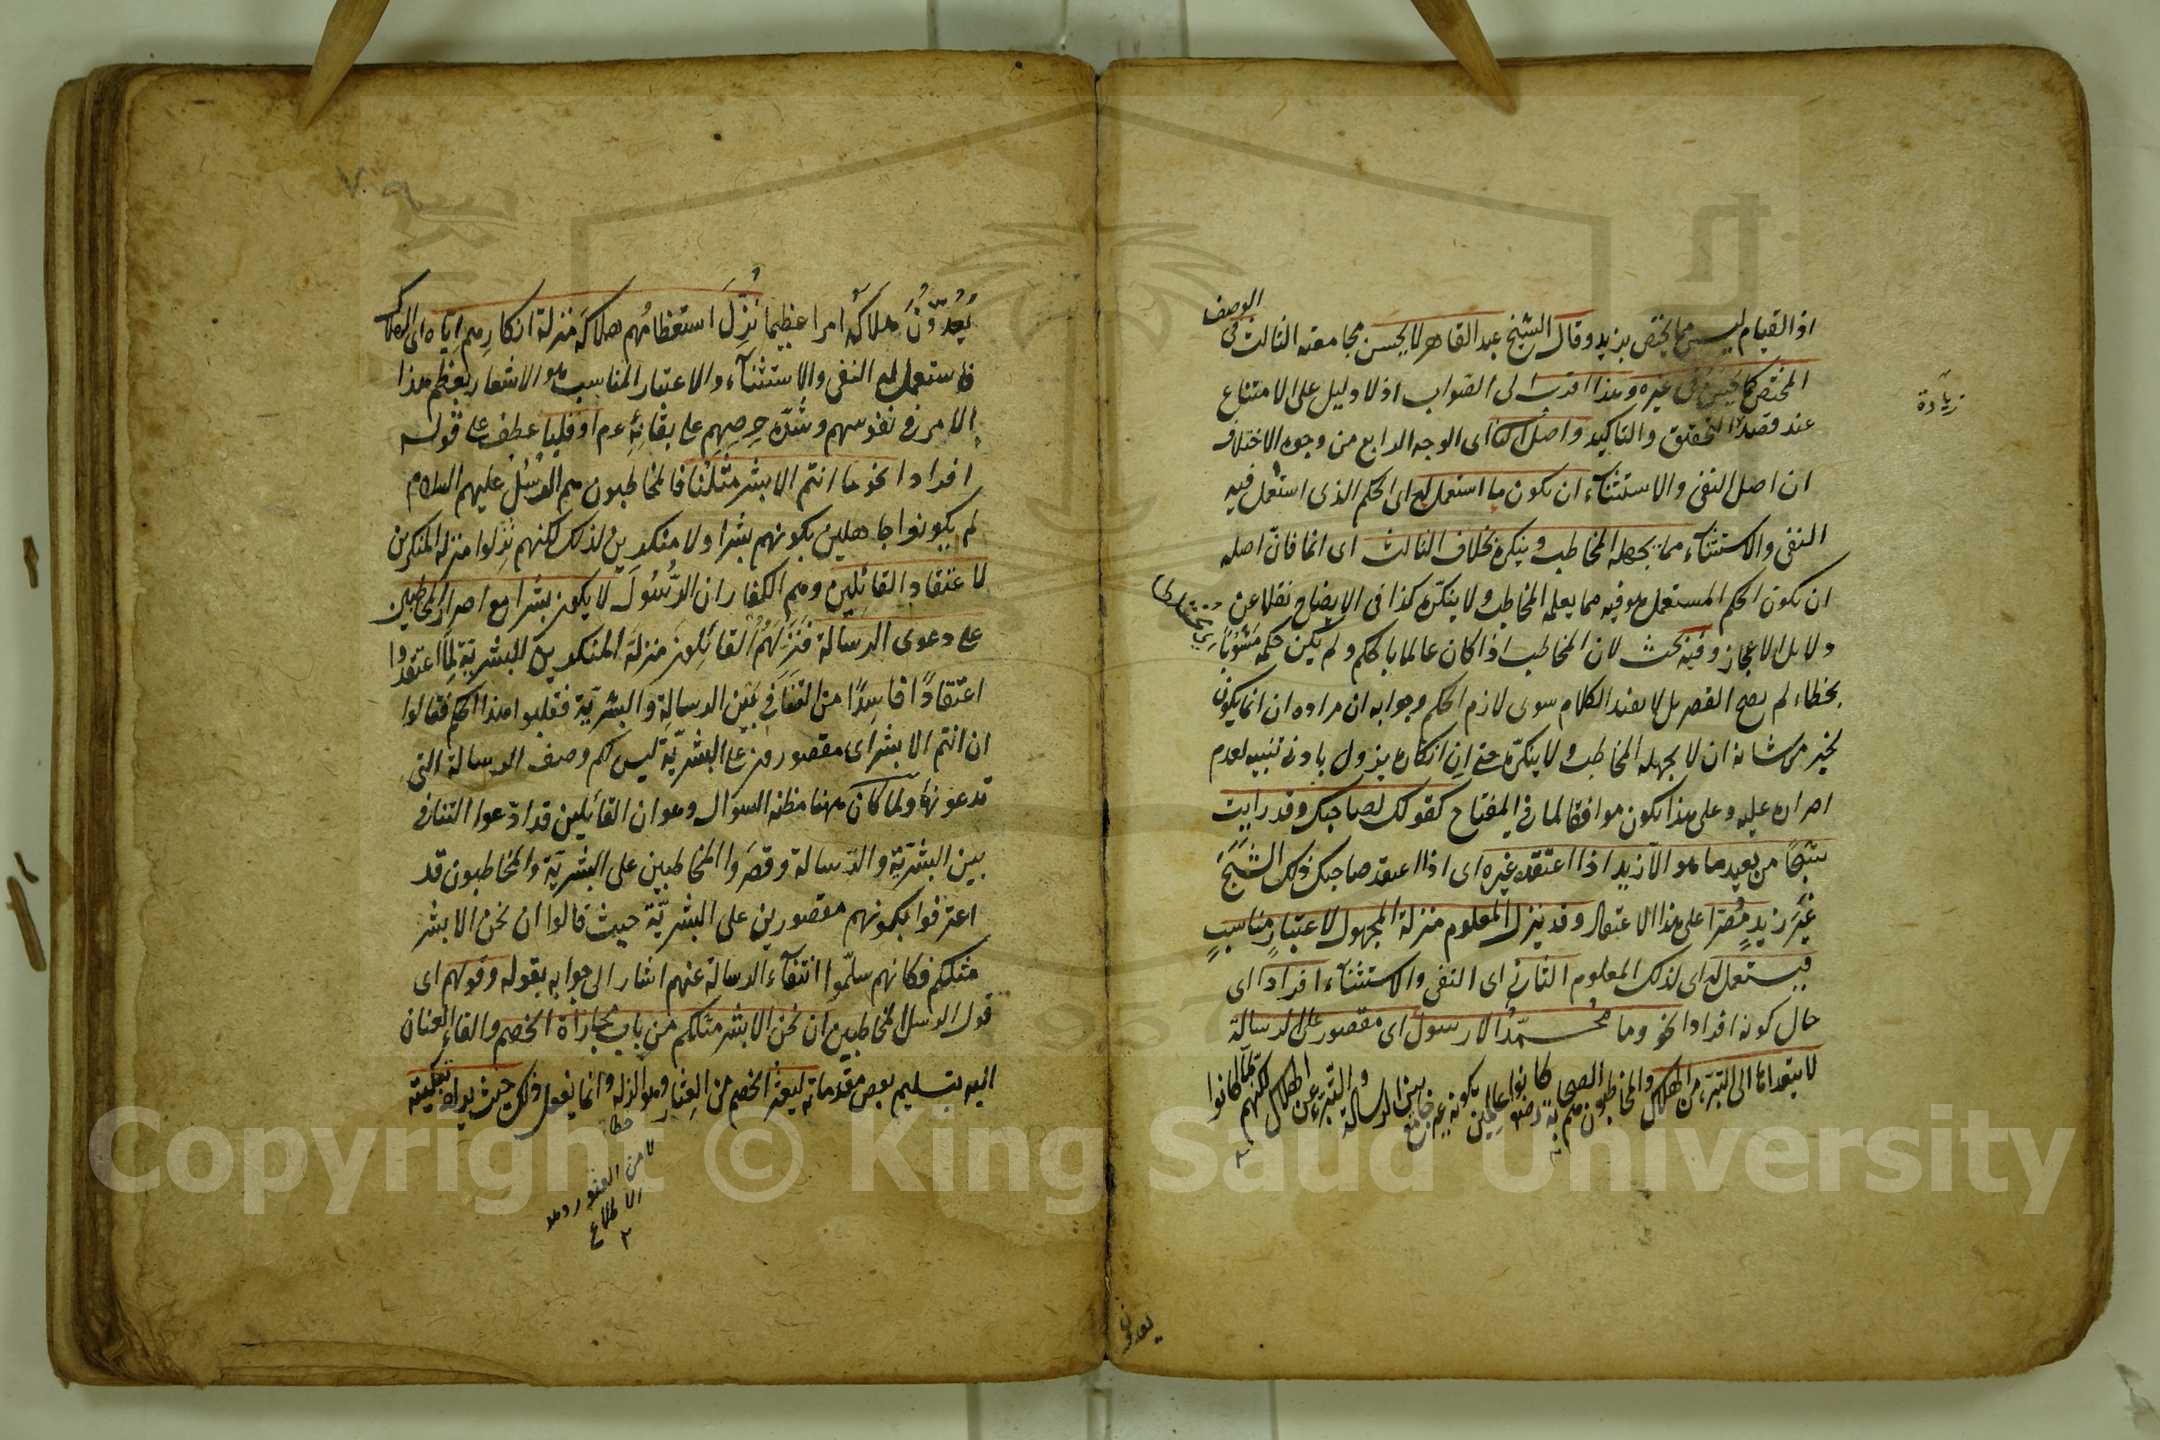 اذ القيام ليس مما يختص بزيد وقال الشيخ عبد القاهر لا يحسن مجامعته الثالث في الوصف
المختص كما يحسن في غيره وهذا اقرب الى الصواب اذ لا دليل على الامتناع
زيادة
عند قصد التحقيق والتاكيد واصل الثاني اى الوجه الرابع من وجوه الاختلاف
ان اصل النفى والاستثنآء ان يكون ما استعمل له اى الحكم الذى استعمل فيه
النفى والاستثنآء مما يجهله المخاطب وينكره بخلاف الثالث اى انما فانّ اصله
ان يكون الحكم المستعمل هو فيه مما يعلمه المخاطب ولا ينكره كذا فى الايضاح نقلا عن
دلايل الاعجاز وفيه بحث لان المخاطب اذا كان عالما بالحكم ولم يكن حكمه مَشُوبًا
بخطاء لم يصح القصر بل لا يفيد الكلام سوى لازم الحكم وجوابه ان مراده ان انما يكون
لخبر من شانه ان لا يجهله المخاطب ولا ينكره حتى ان انكاره يزول بادنى تنبيه لعدم
اصراره عليه وعلى هذا يكون موافقا لما فى المفتاح كقولك لصاحبك وقد رايت
شبحًا من بعيد ما هو الّا زيد اذا اعتقده غيره اى اذا اعتقد صاحبك ذلك الشبح
غير زيد مُصِرّا على هذا الاعتقاد وقد ينزل المعلوم منزلة المجهول لاعتبارٍ مناسبٍ
فيستعمل له اى لذلك المعلوم الثانى اى النفى والاستثنآء افرادا اى
حال كونه افرادا نحو وما محمدٌ الا رسولٌ اى مقصور على الرسالة
لا يتعداها الى التبرى من الهلاك والمخاطبون هم الصحابة رضه كانوا عالمين بكونه غير جامع بين الرسالة والتبرى عن الهلاك لكنهم لما كانوا
يعدون
يَعُدُّونَ هلاكَه امرا عظيما نُزِّلَ استعظامُهم هلاكَه منزلة انكارِهم ايّاه اى الهلاك
فاستعمل له النفى والاستثنآء والاعتبار المناسب هو الاشعار بعظم هذا
الامر فى نفوسهم وشدّة حرصِهِم على بقائِه عم او قلبا عطف على قوله
افرادا نحو ما انتم الا بشر مثلنا فالمخاطبون هم الرُسُل عليهم السلام
لم يكونوا جاهلين بكونهم بشرا ولا منكرين لذلك لكنهم نُزِّلوا منزلة المنكرين
لاعتقاد القائلين وهم الكفار ان الرَّسُولَ لا يكون بشرا مع اصرار المخاطبين
على دعوى الرسالة فنزّلهم القائلون منزلة المنكرين للبشريّة لِما اعتقدوا
اعتقادًا فاسدًا من التنافى بَيْن الرسالة والبشريّة فقلبوا هذا الحكم فقالوا
ان انتم الا بشر اى مقصورون على البشريّة ليس لكم وصف الرسالة التى
تدعونها ولما كان ههنا مظنة السؤال وهو ان القائلين قد ادّعوا التنافى
بين البشريّة والرّسالة وقصَروا المخاطبين على البشريّة والمخاطبون قد
اعترفوا بكونهم مقصورين على البشريّة حيث قالوا ان نحن الا بشر
مثلكم فكانهم سلّموا انتفآء الرسالة عنهم اشار الى جوابه بقوله وقولهم اى
قول الرسل المخاطبين ان نحن الا بشر مثلكم من باب مجاراة الخصم والقاء العنان
اليه بتسليم بعض مقدماته ليعثر الخصم من العِثار وهو الزلة وانما يفعل ذلك حيث يراد تبكيته
خطا
لا من العثور وهو
الاطلاع
٢